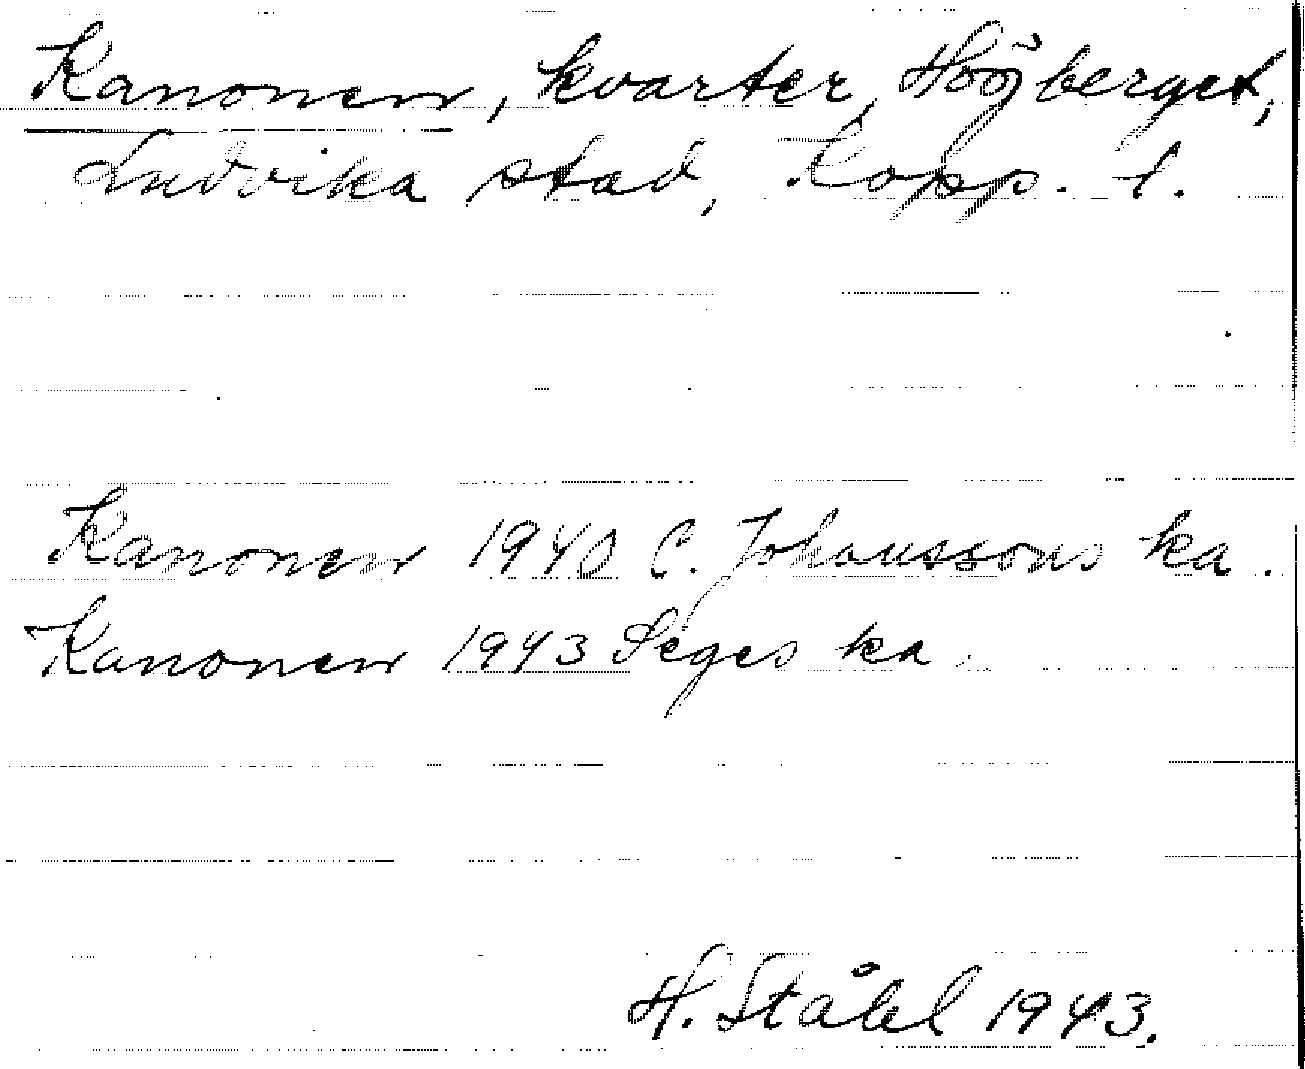 Kanonen, kvarter, Högberget,
Ludvika stad, Kopp. l.
Kanonen 1940 C. Johanssons ka.
Kanonen 1943 Seges ka.
H. Ståhl 1943.